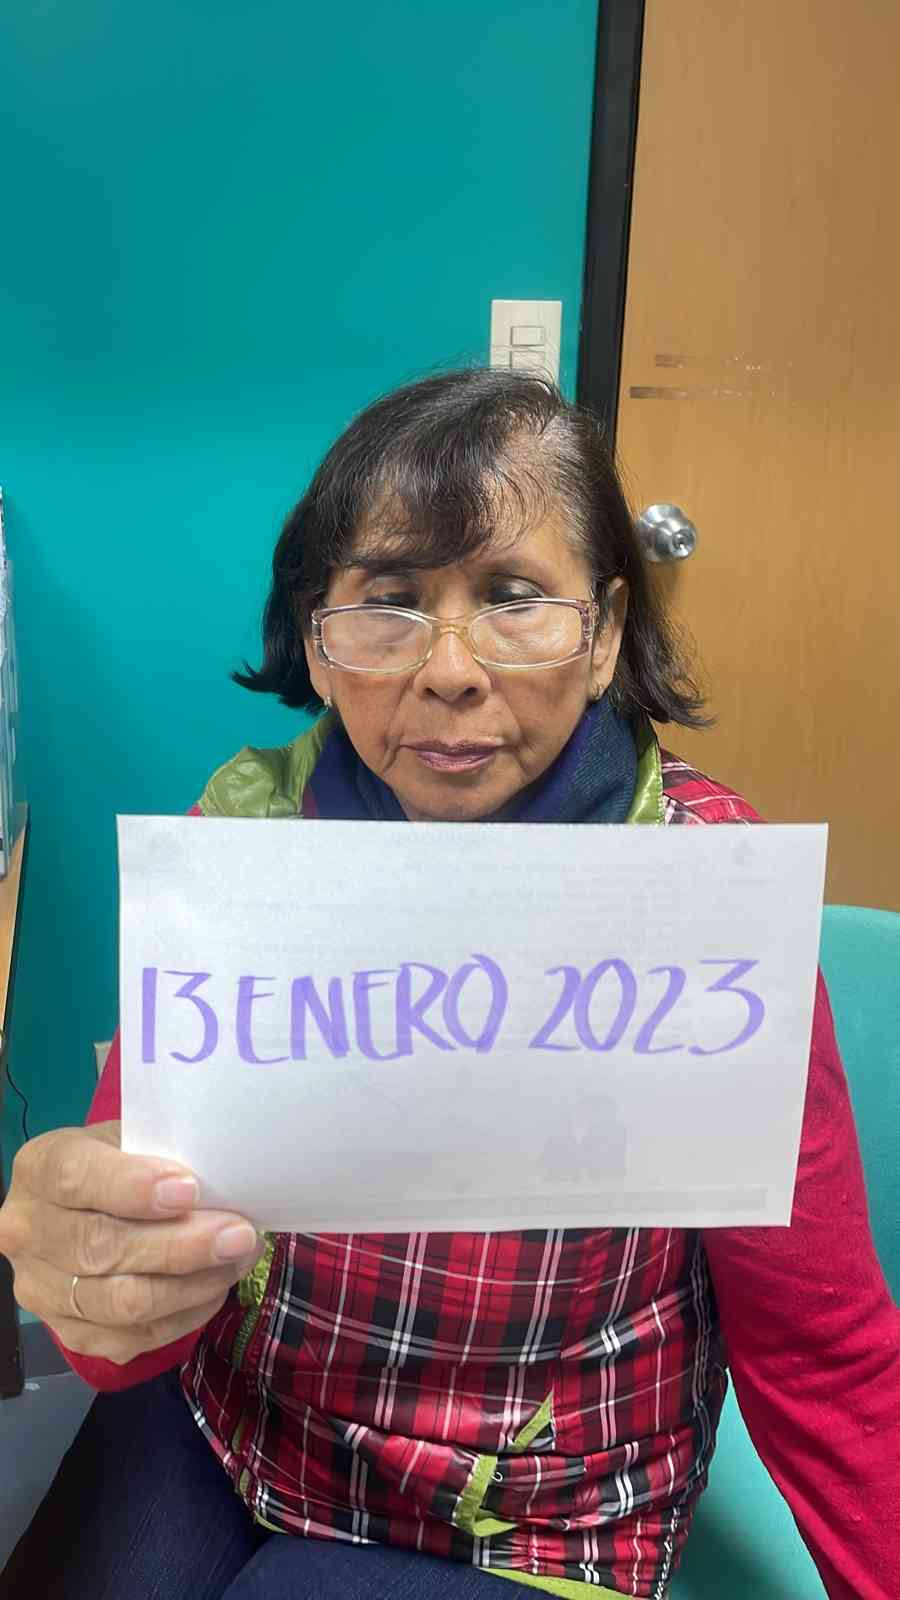 13 ENERO 2023